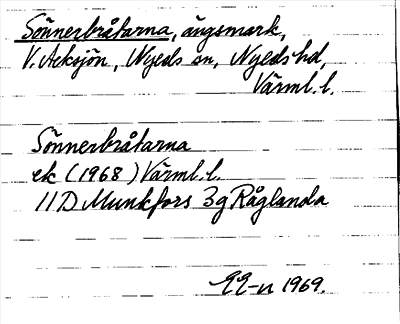 Sönnerbråtarna, ängsmark,
V. Acksjön, Nyeds sn, Nyeds hd,
Värml. l.
Sönnerbråtarna
ek (1968) Värml. l.
11D Munkfors 3g Råglanda
1969.